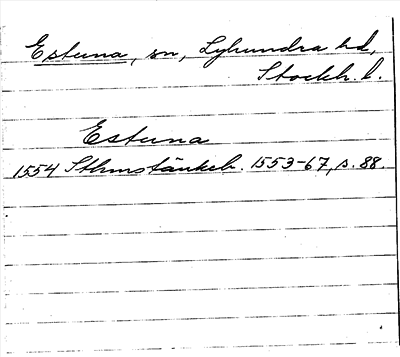 Estuna, sn, Lyhundra hd,
Stockh. l.
Estuna
1554 Sthmstänkeb. 1553-67, s. 88.